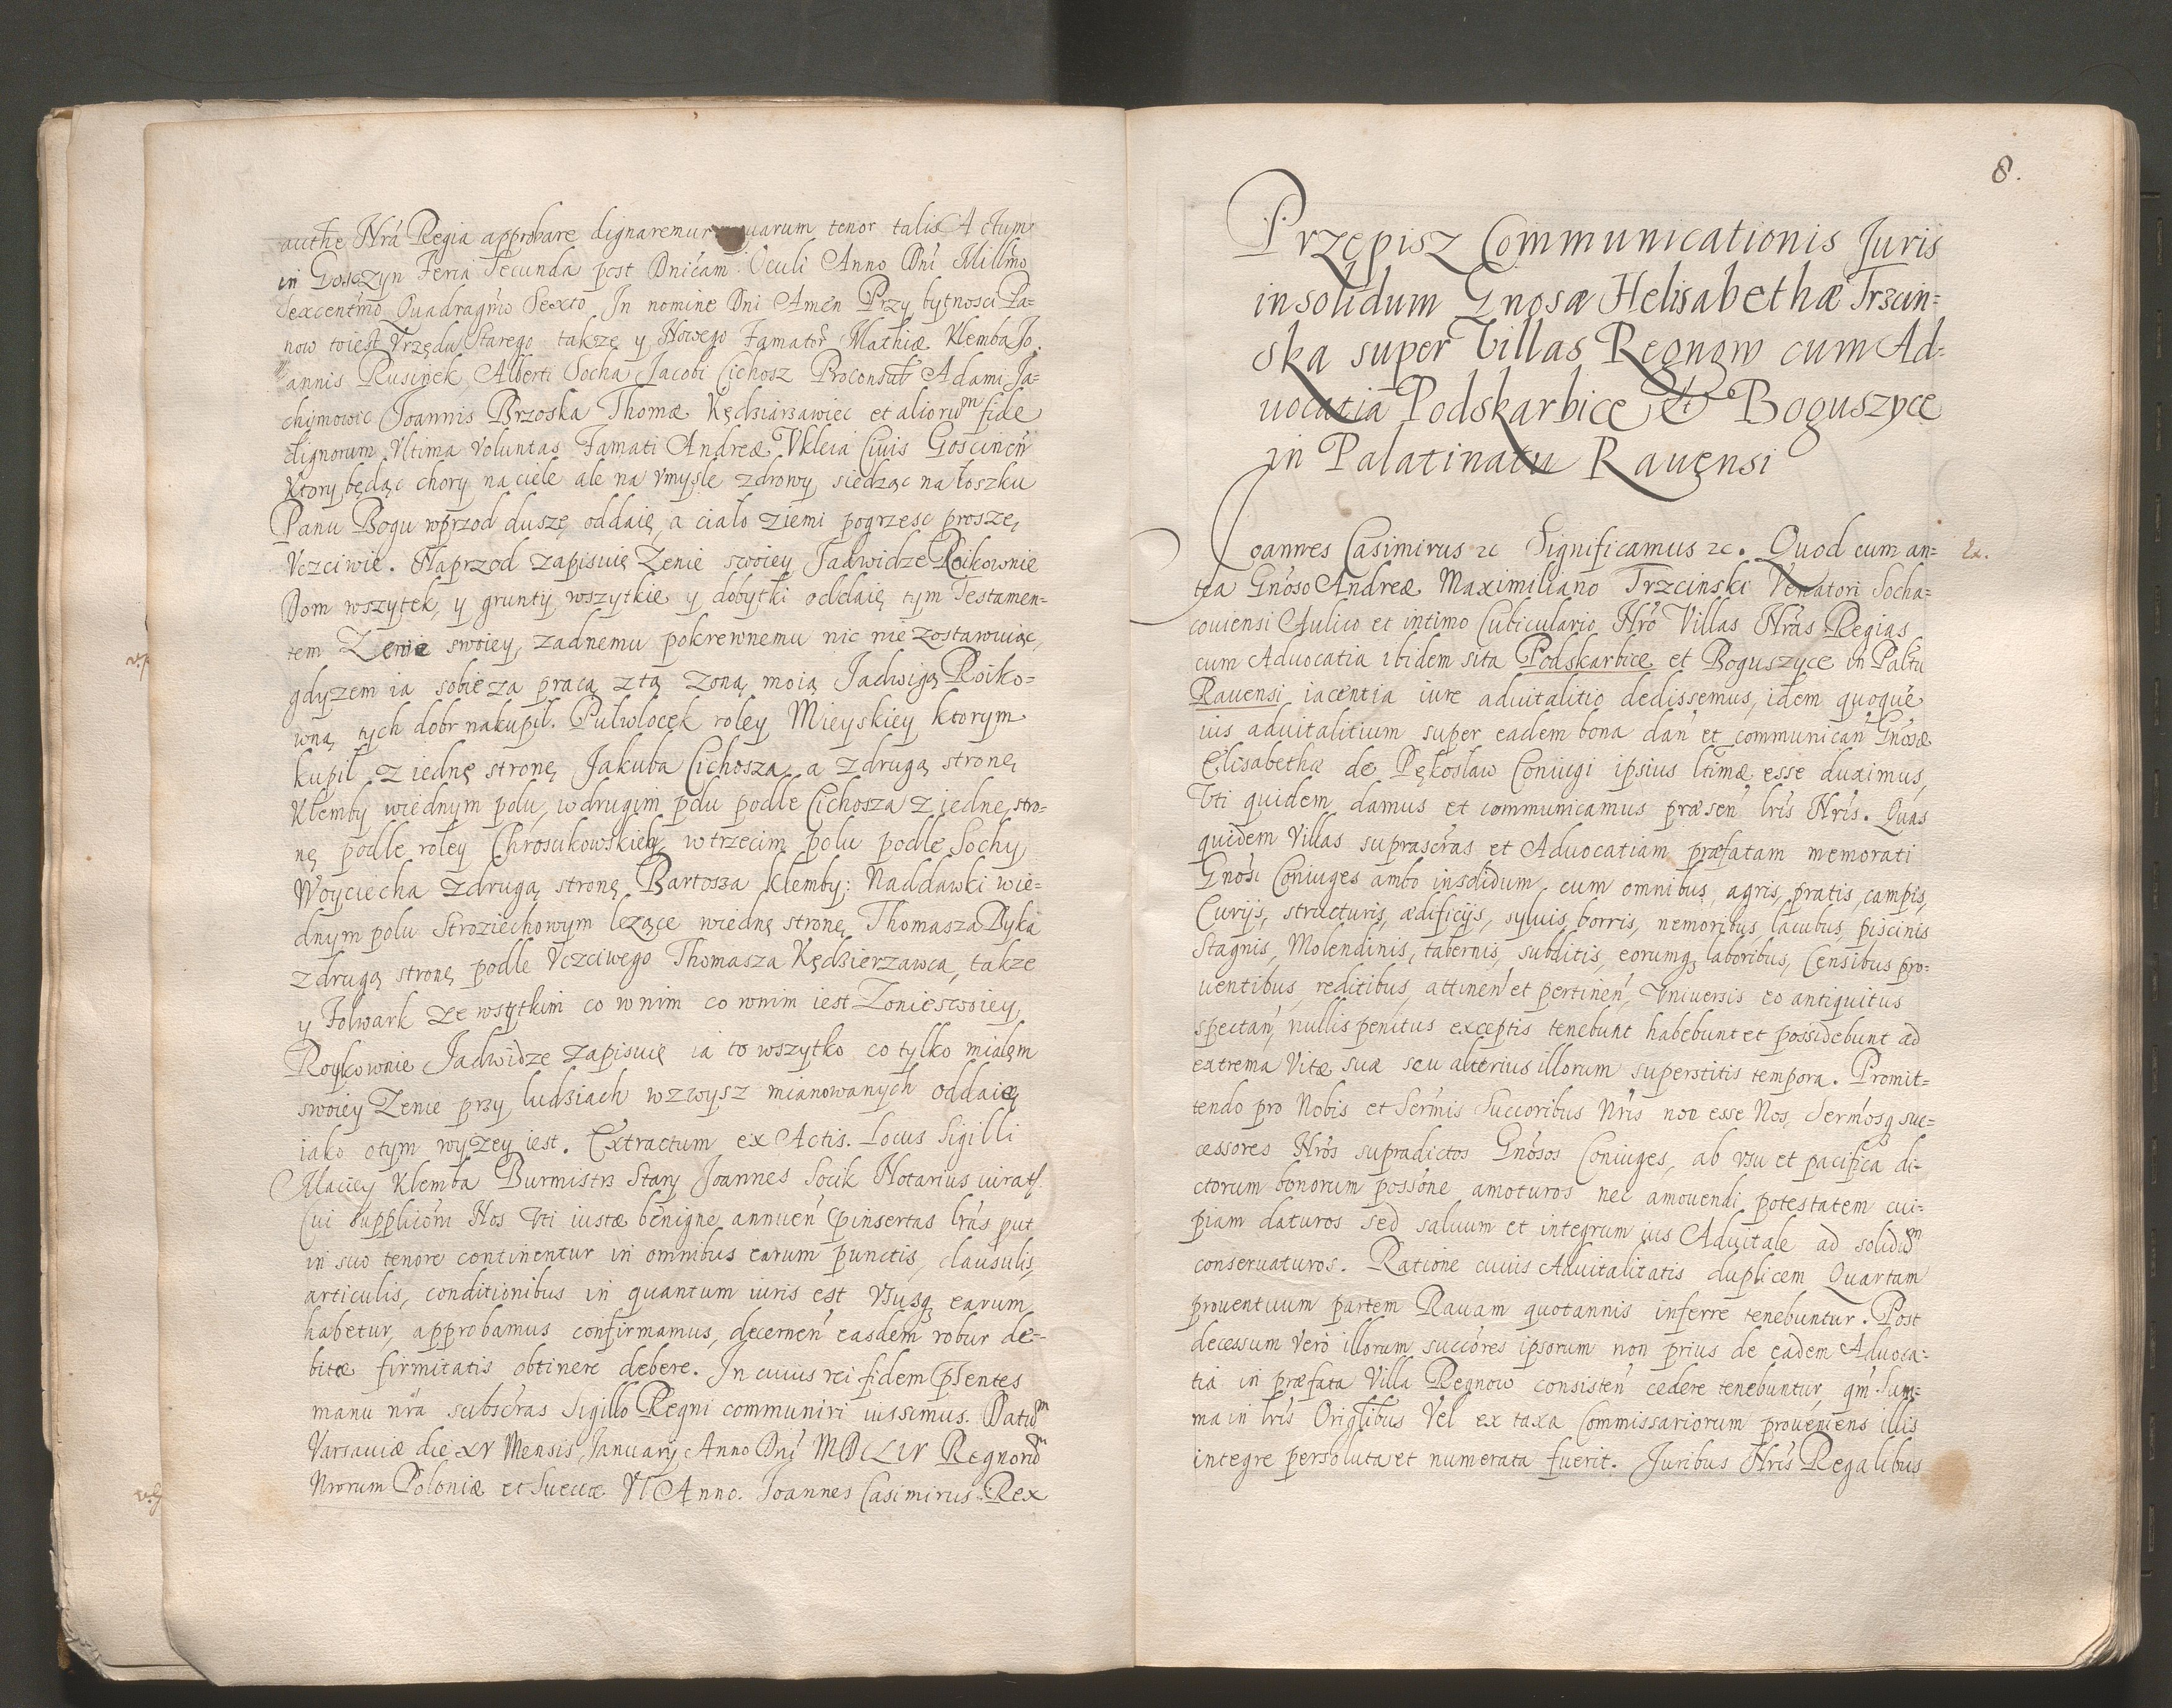 authe Nrã Regia approbare dignaremur quarum tenor talis Actum
in Goszyn Feria Secunda post Dnĩcam Oculi Anno Dnĩ Millmo
Sexcentmo Quadragmo Sexto In nomine Dni Amen Przy bytnosci Pa=
now toiest Vrzędu Starego takze y Nowego Famator Mathiæ Klemba Jo.
annis Rusinek Alberti Socha Jacobi Cichosz Proconsul Adami Ja=
chymowic Joannis Brzoska Thomæ Kędziarzawiec et aliorum fide
dignorum Vltima Voluntas Famati Andreæ Vkleia Ciuis Goscinen
Ktory będąc chory na ciele ale na vmysle zdrowy siedząc na łoszku
Panu Bogu wprzod duszę oddaię, a ciało ziemi pogrzesc proszę,
Vczciwie. Naprzod zapisuię Zenie swoiey Jadwidze Roikownie
Dom wszytek, y grunty wszytkie y dobytki oddaię tym Testamen=
tem Zenie swoiey, zadnemu pokrewnemu nic nie zostawuiąc,
gdyzem ia sobie za pracą z tą zoną moią Jadwigą Roiko=
wną tych dobr nakupil. Pulwlocęk roley Mieyskiey ktorym
kupil z iednę stronę Jakuba Cichosza a z drugą stronę
Klemby wiednym polu, w drugim polu podle Cichosza z iednę stro=
nę podle roley Chrosukowskiey, w trzecim polu podle Sochy
Woyciecha z drugą stronę Bartosza Klemby: Naddawki wie=
dnym polu Stroziechowym lezące wiednę stronę Thomasza Byka
z drugą stronę podle Vczciwego Thomasza Kędzierzawca, takze
y Folwark ze wsytkim co w nim co wnim iest Zonie swoiey
Roykownie Jadwidze zapisuię ia to wszytko co tylko mialęm
swoiey Zenie przy ludziach wzwysz mianowanych oddaię
iako otym wyzey iest. Extractum ex Actis. Locus Sigilli
Maciey Klemba Burmistrz Stary Joannes Socik Notarius iurat
Cui supplicõni Nos Vti iustæ benigne annuen pinsertas lras put
in suo tenore continentur in omnibus earum punctis, clausulis,
articulis, conditionibus in quantum iuris est Vsusq earum
habetur, approbamus confirmamus, decernen easdem robur de=
bitæ firmitatis obtinere debere. In cuius rei fidem psentes
manu nrã subscras Sigillo Regni communiri iussimus. Datum
Varsauiæ die XV Mensis January Anno Dnĩ MDCLIV Regnorum
Nrorum Poloniæ et Sueciæ VI Anno. Joannes Casimirus Rex
8.
Przepisz Communicationis Juris
in solidum Gnosæ Helisabethæ Trzcin=
ska super Villas Regnow cum Ad=
uocatia Podskarbice et Boguszyce
in Palatinatu Rauensi
Joannes Casimirus zc Significamus zc. Quod cum an=
tea Gnoso Andreæ Maximiliano Trzcinski Venatori Socha=
couiensi Aulico et intimo Cubiculario Nrõ Villas Nrãs Regias
cum Aduocatia ibidem sita Podskarbice et Boguszyce in Paltu
Rauensi iacentia iure aduitalitio dedissemus, idem quoque
ius aduitalitium super eadem bona dan et communican Gnosæ
Elisabethæ de Pękosław Coniugi ipsius ltimæ esse duximus,
Vti quidem damus et communicamus præsen lris Nris. Quas
quidem Villas suprascras et Aduocatiam præfatam memorati
Gnosi Coniuges ambo in solidum cum omnibus agris, pratis, campis,
Curijs, structuris, ædificijs, syluis, borris, nemoribus, lacubus, piscinis
Stagnis, Molendinis, tabernis, subditis, eorumq laboribus, Censibus pro=
uentibus, reditibus, attinen et pertinen, Vniuersis eo antiquitus
spectan, nullis penitus exceptis tenebunt habebunt et possidebunt ad
extrema Vitæ suæ seu alterius illorum superstitis tempora. Promit=
tendo pro Nobis et Sermis Succoribus Nris non esse Nos, Sermosq suc=
cessores Nros supradictos Gnosos Coniuges, ab vsu et pacifica di=
ctorum bonorum possone amoturos nec amouendi potestatem cui=
piam daturos sed saluum et integrum ius Aduitale ad solidum
conseruaturos. Ratione cuius Aduitalitatis duplicem Quartam
prouentuum partem Rauam quotannis inferre tenebuntur. Post
decessum Vero illorum succores ipsorum non prius de eadem Aduoca=
tia in præfata Villa Regnow consisten cedere tenebuntur, qm Sum=
ma in lris Origlibus Vel ex taxa Commissariorum proueniens illis
integre persoluta et numerata fuerit. Juribus Nris Regalibus